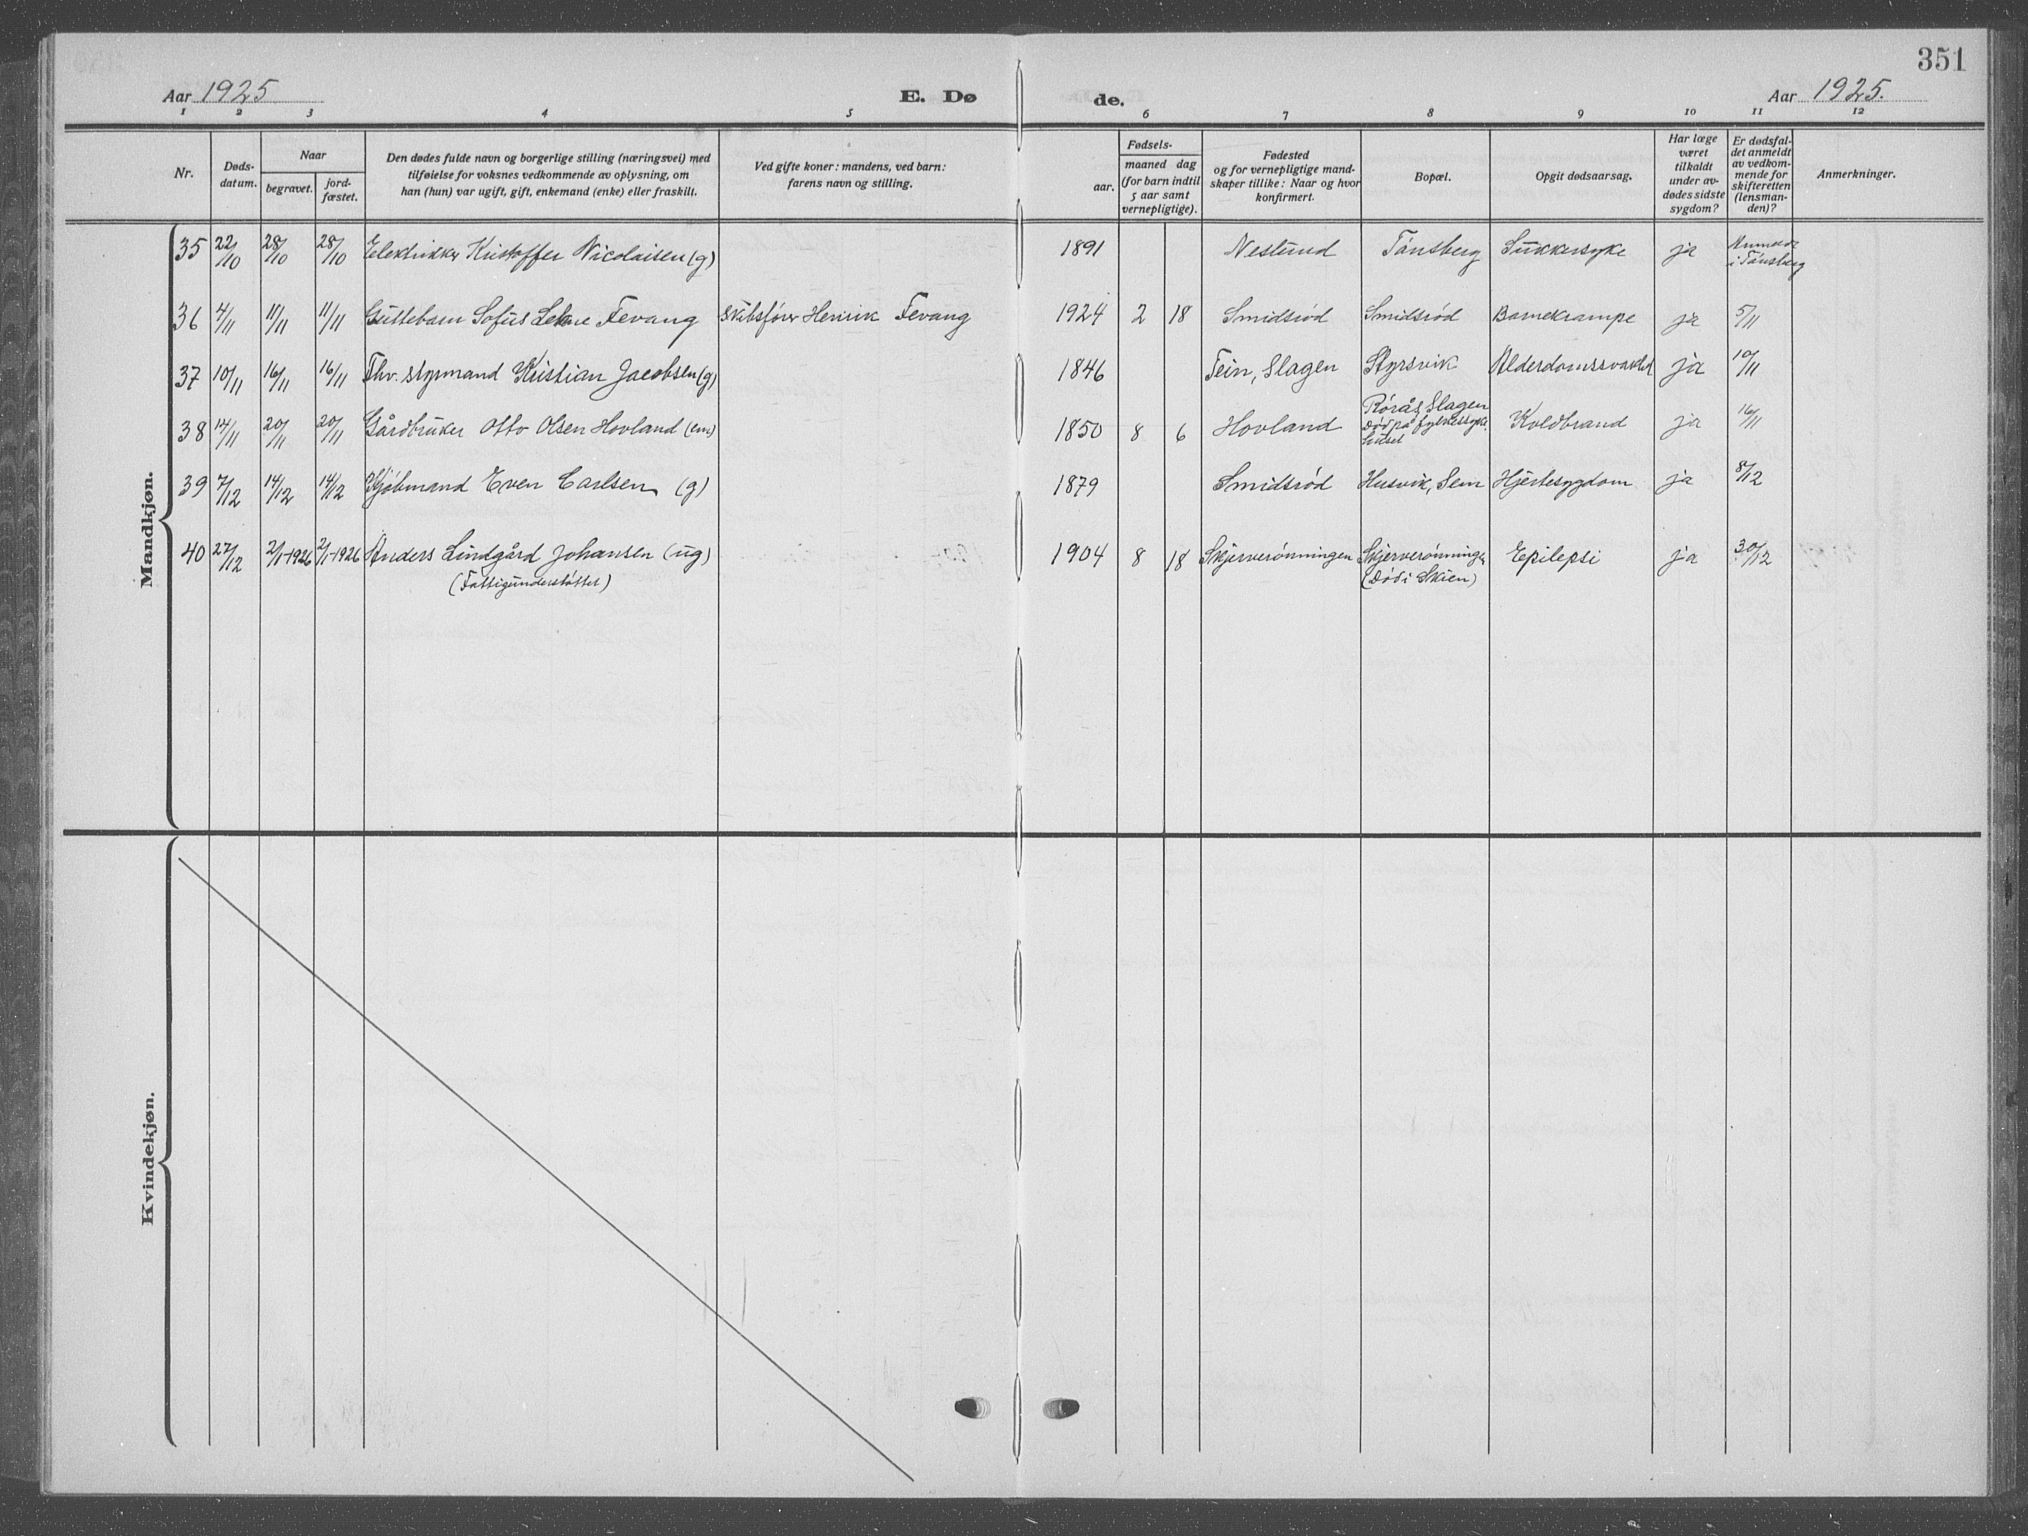 351
Aar 1925
E. Dø
de.
Aar 1925.
1 2 3 4 5 6 7 8 9 10 11 12
Nr.
Døds-
datum.
Naar
begravet.
jord-
fæstet.
Den dødes fulde navn og borgerlige stilling (næringsvei) med
tilføielse for voksnes vedkommende av oplysning, om
han (hun) var ugift, gift, enkemand (enke) eller fraskilt.
Ved gifte koner: mandens, ved barn:
farens navn og stilling.
aar.
Fødsels-
maaned dag
(for barn indtil
5 aar samt
vernepligtige).
Fødested
og for vernepligtige mand-
skaper tillike: Naar og hvor
konfirmert.
Bopæl.
Opgit dødsaarsag.
Har læge
været
tilkaldt
under av-
dødes sidste
sygdom?
Er dødsfal-
det anmeldt
av vedkom-
mende for
skifteretten
(lensman-
den)?
Anmerkninger.
Mandkjøn.
35 22/10 28/10 28/10 Elektriker Kristoffer Nicolaisen (g) 1891 Neslund Tønsberg Sukkersyke ja Anmeldt
i Tønsberg
36 4/11 11/11 11/11 Guttebarn Sofus Fevang Skibsfører Henrik Fevang 1924 2 18 Smidsrød Smidsrød Barnekrampe ja 5/11
37 10/11 16/11 16/11 Fhv. styrmand Kristian Jacobsen (g) 1846 Tein, Slagen Styrsvik Alderdomssvakhet ja 10/11
38 14/11 20/11 20/11 Gårdbruker Otto Olsen Hovland (em) 1850 8 6 Hovland Rørås, Slagen
Død på fylkessyke-
huset Koldbrand ja 16/11
39 7/12 14/12 14/12 Kjøbmand Even Carlsen (g) 1879 Smidsrød Husvik, Sem Hjertesygdom ja 8/12
40 27/12 2/1-1926 2/1-1926 Anders Lindgård Johansen (ug) 1904 8 18 Skjerverønningen Skjerverønningen Epilepsi ja 30/12
(Fattigunderstøttet) (død i Skien)
Kvindekjøn.